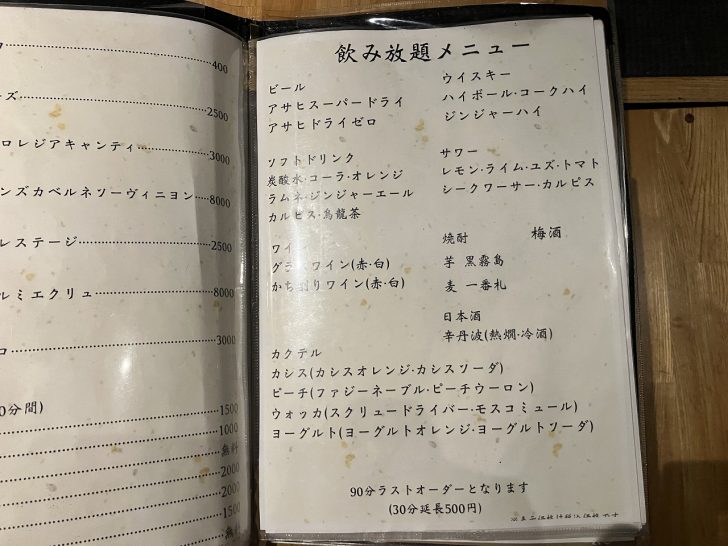 400
ーズ
2500
ロレジアキャンティ 3000
ンズカベルネソーヴィニヨン 8000
レステージ 2500
ルミエクリュ 8000
3000
0分間)
1500
1000
無料
2000
2000
1500
無料
飲み放題メニュー
ビール
アサヒスーパードライ
アサヒドライゼロ
ソフトドリンク
炭酸水・コーラ・オレンジ
ラムネ・ジンジャーエール
カルピス・烏龍茶
ワイ
グラ ワイン(赤・白)
かち割りワイン(赤・白)
ウイスキー
ハイボール・コークハイ
ジンジャーハイ
サワー
レモン・ライム・ユズ・トマト
シークワーサー・カルピス
焼酎 梅酒
芋 黒霧島
麦 一番札
日本酒
辛丹波(熱燗・冷酒)
カクテル
カシス(カシスオレンジ・カシスソーダ)
ピーチ(ファジーネーブル・ピーチウーロン)
ウォッカ(スクリュードライバー・モスコミュール)
ヨーグルト(ヨーグルトオレンジ・ヨーグルトソーダ)
90分ラストオーダーとなります
(30分延長500円)
※表示価格は税込価格です